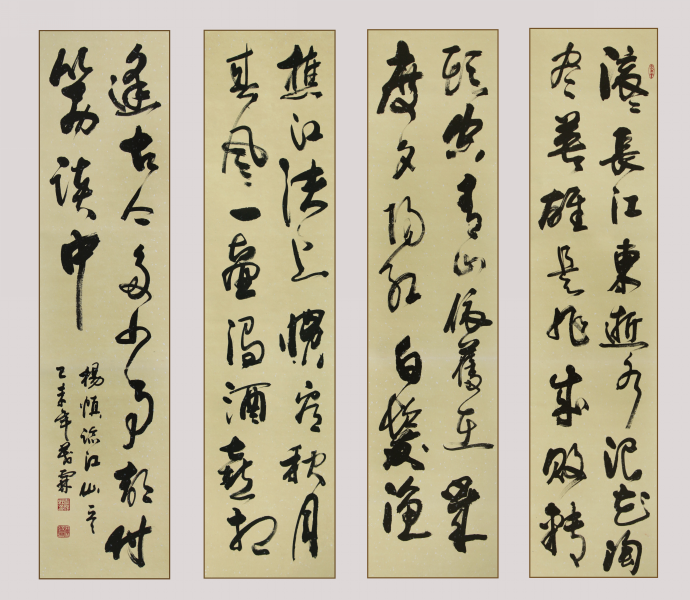 滚々長江東逝水浪花淘
尽英雄是非成敗轉
頭空青山依舊在幾
度夕陽紅白髮漁
樵江渚上慣看秋月
春風一壺濁酒喜相
逢古今多少事都付
笑談中
楊慎臨江仙
乙未年